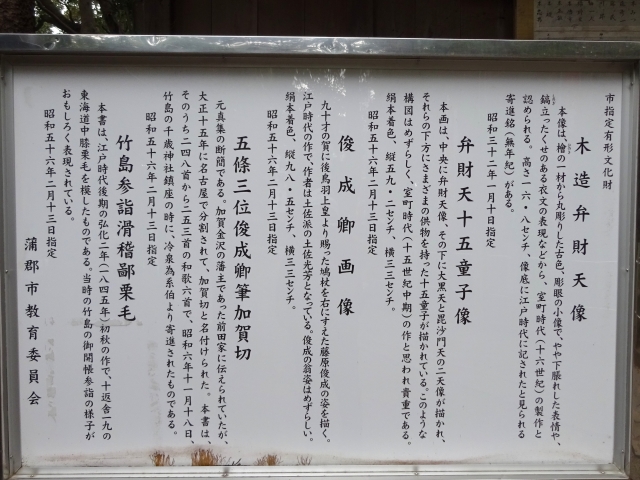 市指定有形文化財
木造弁財天像
本像は、檜の一材から丸彫りした古色、彫眼の小像で、やや下脹れした表情や、
鎬立ったくせのある衣文の表現などから、室町時代(十六世紀)の製作と
認められる。高さ一六・八センチ、像底に江戸時代に記されたと見られる
寄進銘(無年紀)がある。
昭和三十二年一月十日指定
弁財天十五童子像
本画は、中央に弁財天像、その下に大黒天と毘沙門天の二天像が描かれ、
それらの下方にさまざまの供物を持った十五童子が描かれている。このような
構図はめずらしく、室町時代(十五世紀中期)の作と思われ貴重である。
絹本着色、縦五九・二センチ、横三三センチ。
昭和五十六年二月十三日指定
俊成卿画像
九十才の賀に後鳥羽上皇より賜った鳩杖を右にすえた藤原俊成の姿を描く。
江戸時代の作で、作者は土佐派の土佐光芳となっている。俊成の翁姿はめずらしい。
絹本着色、縦九八・五センチ、横三三センチ。
昭和五十六年二月十三日指定
五條三位俊成卿筆加賀切
元真集の断簡である。加賀金沢の藩主であった前田家に伝えられていたが、
大正十五年に名古屋で分割されて、加賀切と名付けられた。本書は、
そのうち二四八首から二五三首の和歌六首で、昭和六年十一月十八日、
竹島の千歳神社鎮座の時に、冷泉為系伯より寄進されたものである。
昭和五十六年二月十三日指定
竹島参詣滑稽鄙栗毛
本書は、江戸時代後期の弘化二年(一八四五年)初秋の作で、十返舎一九の
東海道中膝栗毛を模したものである。当時の竹島の御開帳参詣の様子が
おもしろく表現されている。
昭和五十六年二月十三日指定
蒲郡市教育委員会